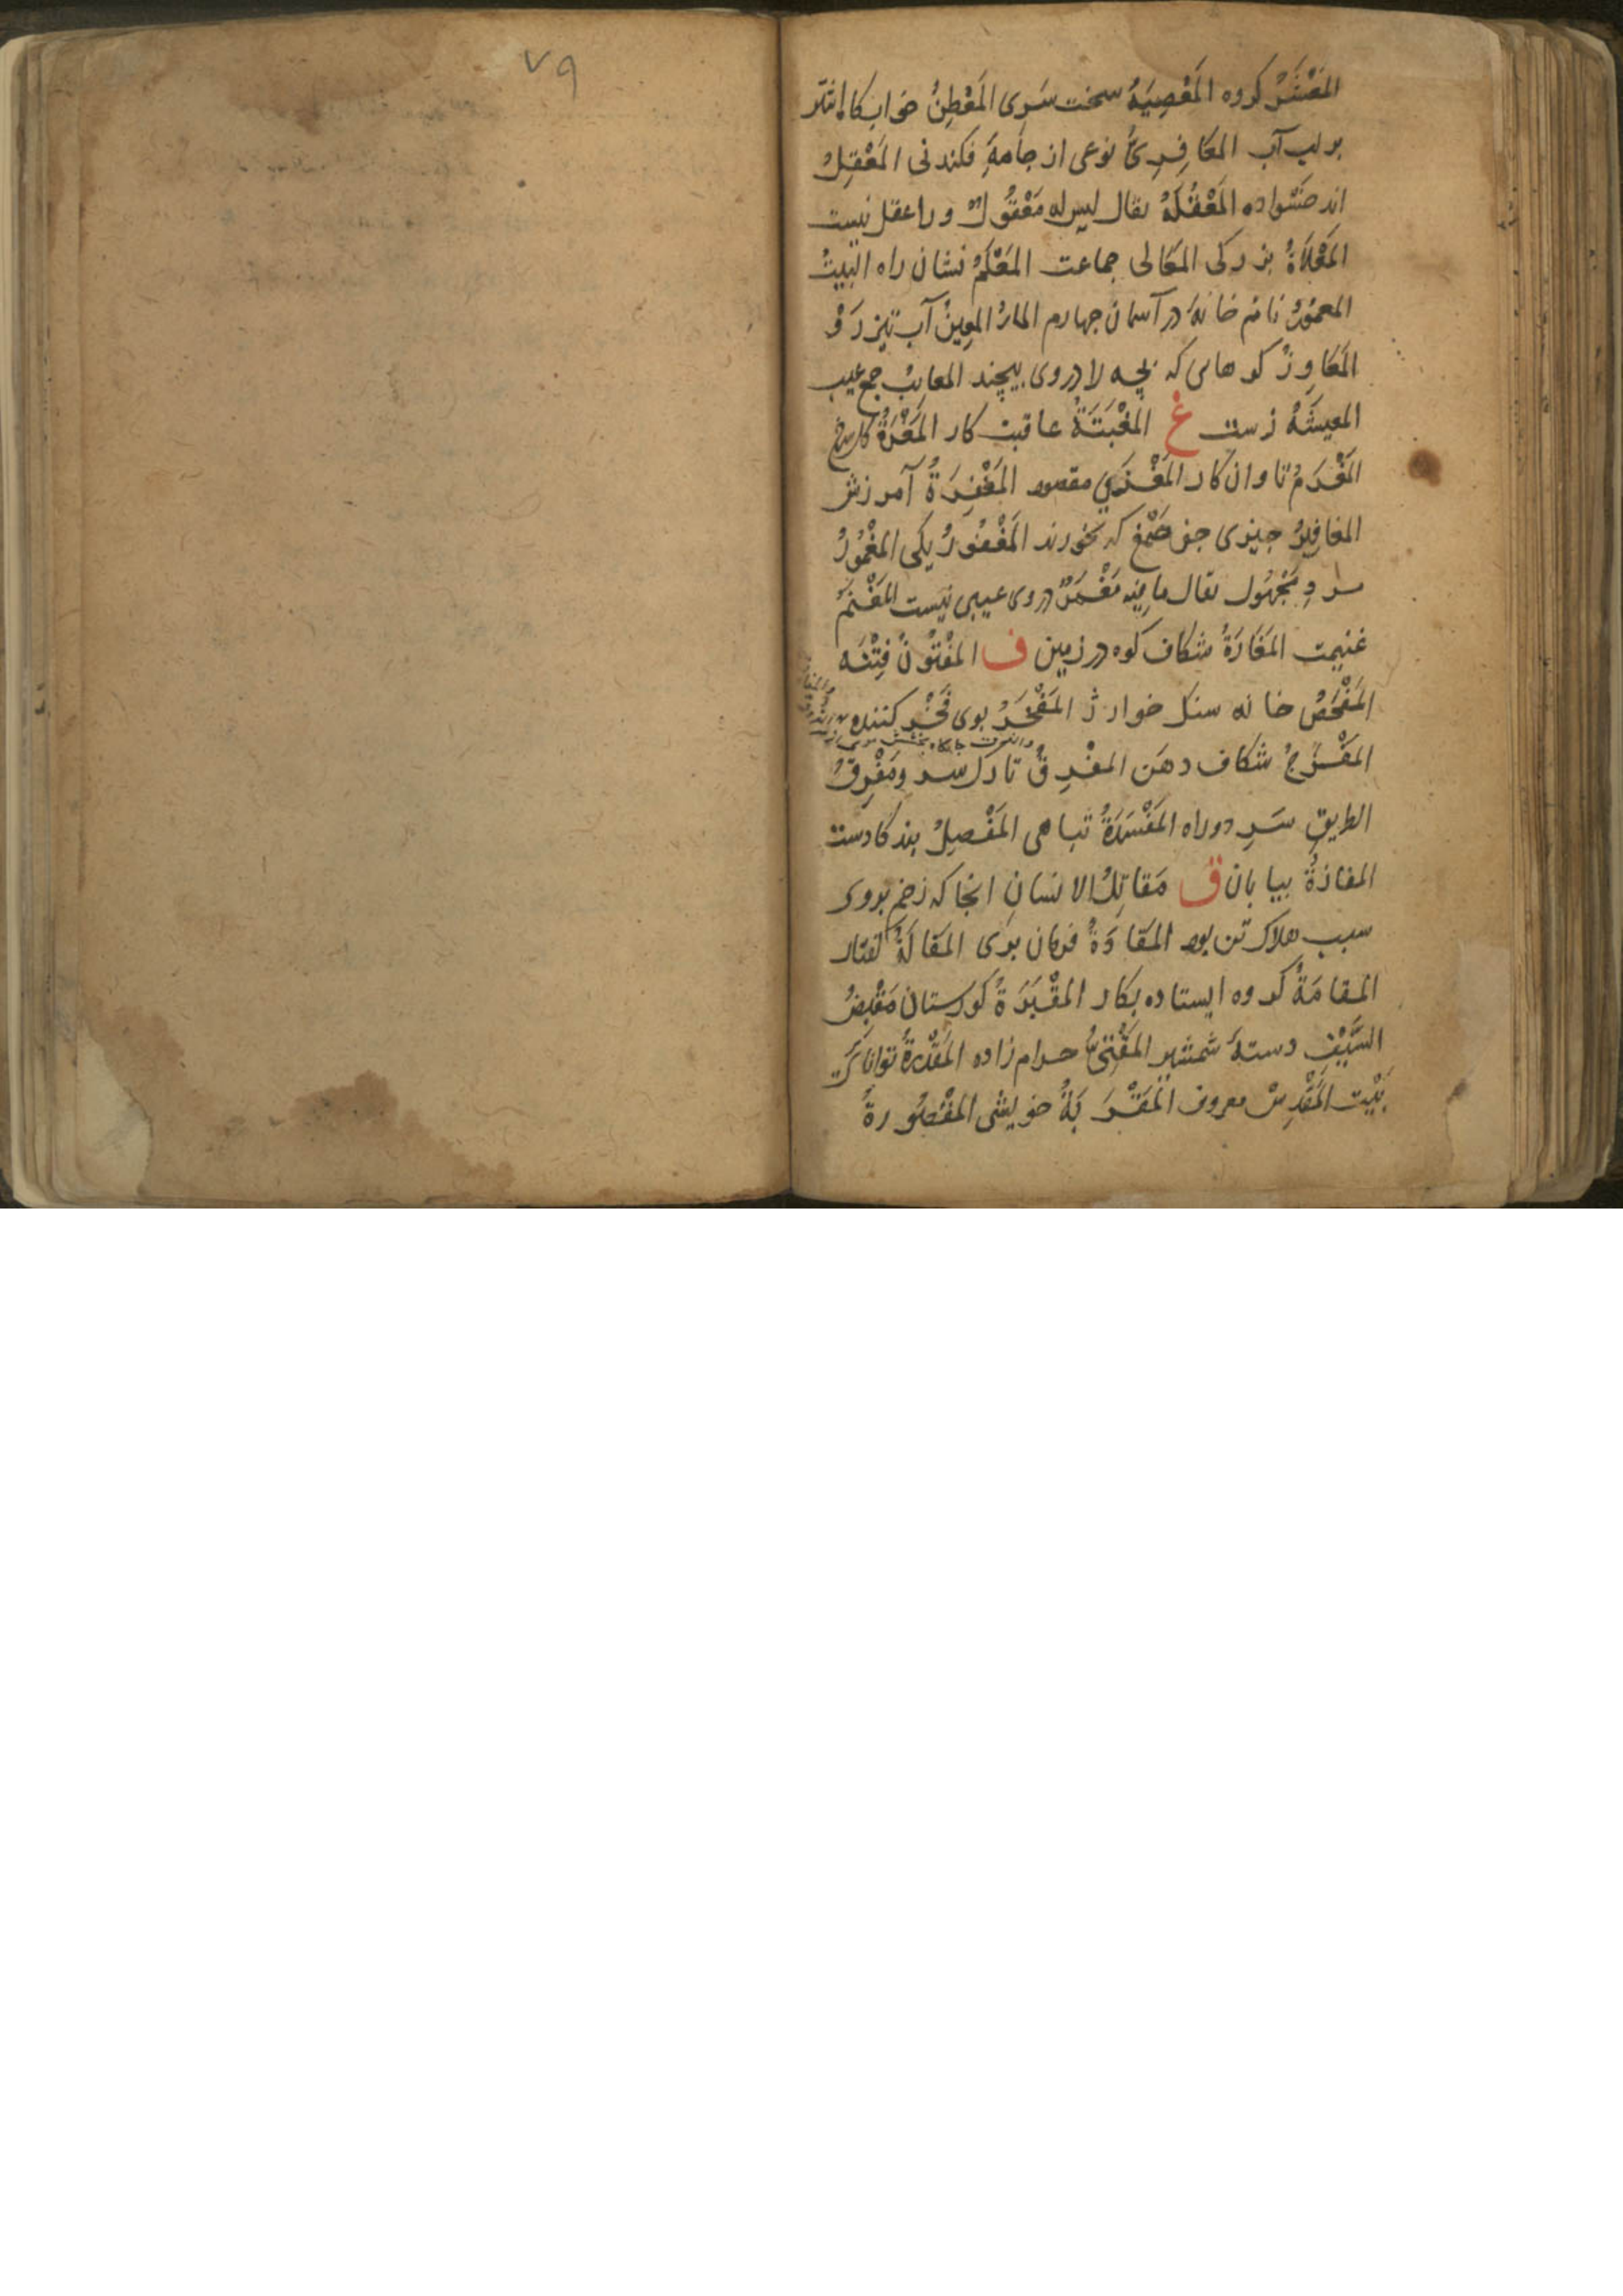 ٧٩
المَعْشَرُ كروه المَعْصِيَةُ سخت سَرى المَعْطِنُ خوابكا اشتر
بر لب آب المَعَافِرِىُّ نوعى از جامهٔ فكندنى المَعْقِلُ
اندخسواده المَعْقُلَةُ يقال ليس له مَعْقُولٌ ورا عقل نيست
المَعْلاَةُ بزركى المَعَالى جماعت المَعْلَمُ نشان راه البيتُ
المعمورُ نام خانهٔ در آسمان چهارم الماءُ المعِينُ آب تيز رَوْ
المَعَاوِزُ كوهاى كه بچه را در وى پيچند المعايبُ جمع عيب
المعيشَةُ زست غ المَغَبَّةُ عاقبت كار
المَغْرَمُ تاوان كار المَغْزَى مقصود المَغْفِرَةُ آمرزش
المغافِيرُ چيزى چون صَمْغ كه بخورند المَغْفُورُ يكى المَغْمُورُ
مردِ مَجْهُول يقال ما فيه مَغْمَزٌ در وى عيبى نيست المَغْنَمُ
غنيمت المَغَارَةُ شكاف كوه در زمين ف المَفْتُونُ فِتْنَه
المَفْحَصُ خانه سنك خوار ژ المَفْخَرُ بوى فَخْر كننده
المَفْرَجُ شكاف دهَن المفْرِقُ تارك سر ومَفْرِقُ
الطريقِ سَرِ دو راه المَفْسَدَةُ تباهى المَفْصِلُ بندكا دست
المفازةُ بيابان ق مَقاتِلُ الانسانِ انجا كه زخم بر وى
سبب هلاك تن بود المَقَادَةُ فرمان برى المَقَالَةُ كفتار
المقامَةُ كروه ايستاده بكار المَقْبَرَةُ كورستان مَقْبِضُ
السَّيْفِ دستهٔ شمشير المَقْتِىُّ حرام زاده المَقْدِرَةُ توانا كرى
بَيْت المَقْدِسْ معروف المَقْرَبَةُ خويشى المَقْصُورةُ